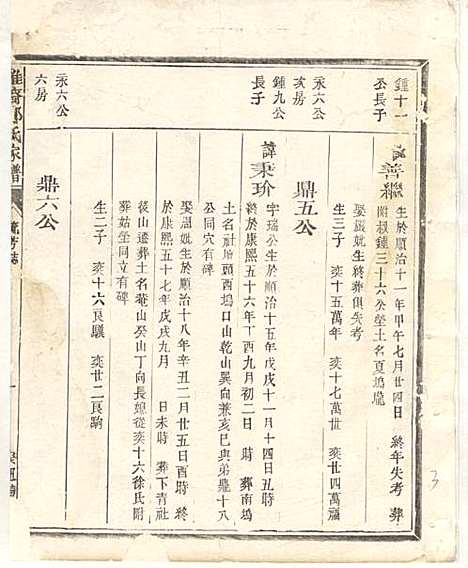 鍾十一
公長子
善繼
生於順治十一年甲午七月廿四日 終年失考 葬
附叔鍾三十六公塋土名夏塢隴
娶嚴姚生終葬俱失考
生三子 奕十五萬年 奕十七萬世 奕廿四萬福
鼎五公
汞六公
亥房
鍾九公
長子
諱秉玠
字瑞公生於順治十五年戊戌十一月十四日丑時
終於康熙五十六年丁酉九月初二日 時 葬南塢
土名社培頭酉塢口山乾山巽向兼亥巳與弟鼎十八
公同穴有碑
娶周妣生於順治十八年辛丑二月廿五日酉時 終
於康熙五十七年戊戌九月 日未時 葬下青社
後山遷葬土名菴山癸山丁向長媳從奕十六徐氏附
葬姑塋同立有碑
生二子 奕十六良驥 奕廿二良駒
鼎六公
汞六公
六房
氏家譜
3